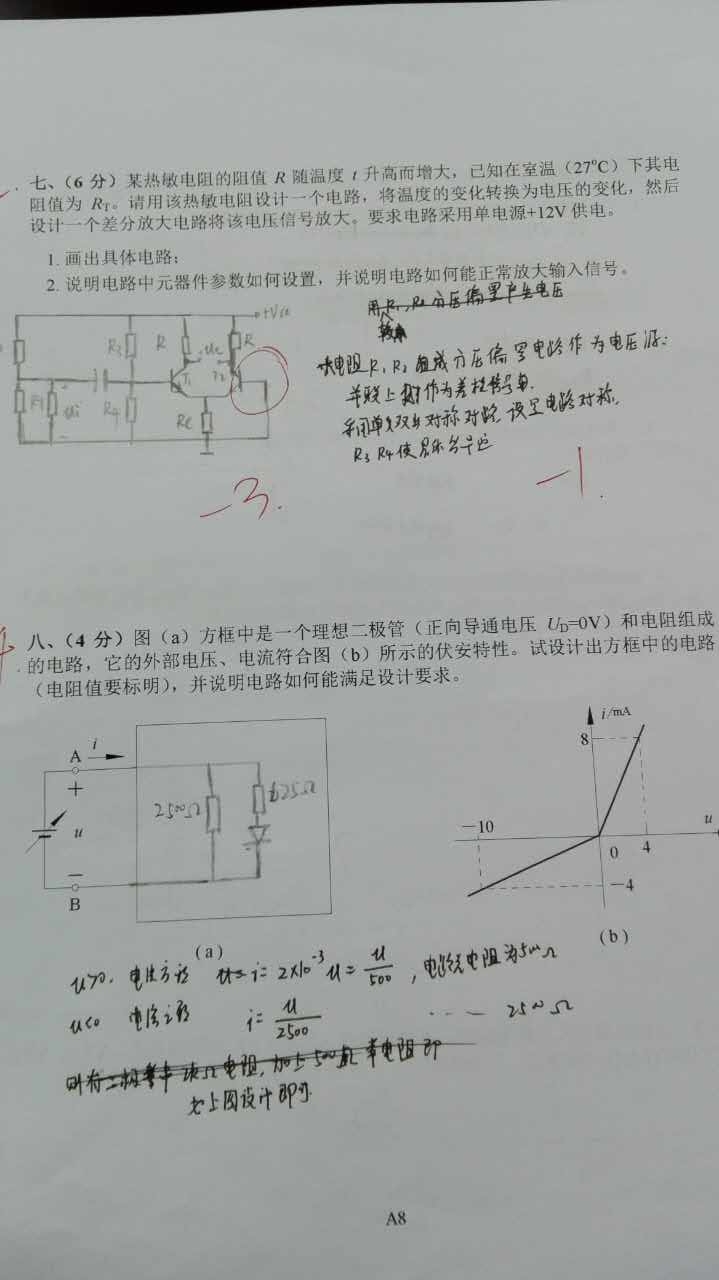 七、（6 分）某热敏电阻的阻值 R 随温度 t 升高而增大，已知在室温（27°C）下其电
阻值为 RT。请用该热敏电阻设计一个电路，将温度的变化转换为电压的变化，然后
设计一个差分放大电路将该电压信号放大。要求电路采用单电源+12V 供电。
1. 画出具体电路；
2. 说明电路中元器件参数如何设置，并说明电路如何能正常放大输入信号。
+Vcc
R3
R
R
T1
ui
R4
Re
电阻 R1 R2 组成分压偏置电路作为电压源:
设置电路对称.
R3 R4 使
-3.
-1.
八、（4 分）图（a）方框中是一个理想二极管（正向导通电压 UD=0V）和电阻组成
的电路，它的外部电压、电流符合图（b）所示的伏安特性。试设计出方框中的电路
（电阻值要标明），并说明电路如何能满足设计要求。
A
i
+
u
−
B
2500Ω
625Ω
(a)
i/mA
8
−10
u
0
4
−4
(b)
u>0. i= 2×10⁻³ u= u/500 , 电阻为500Ω
u<0 i= u/2500 ---- 2500 Ω
如上图设计即可.
A8